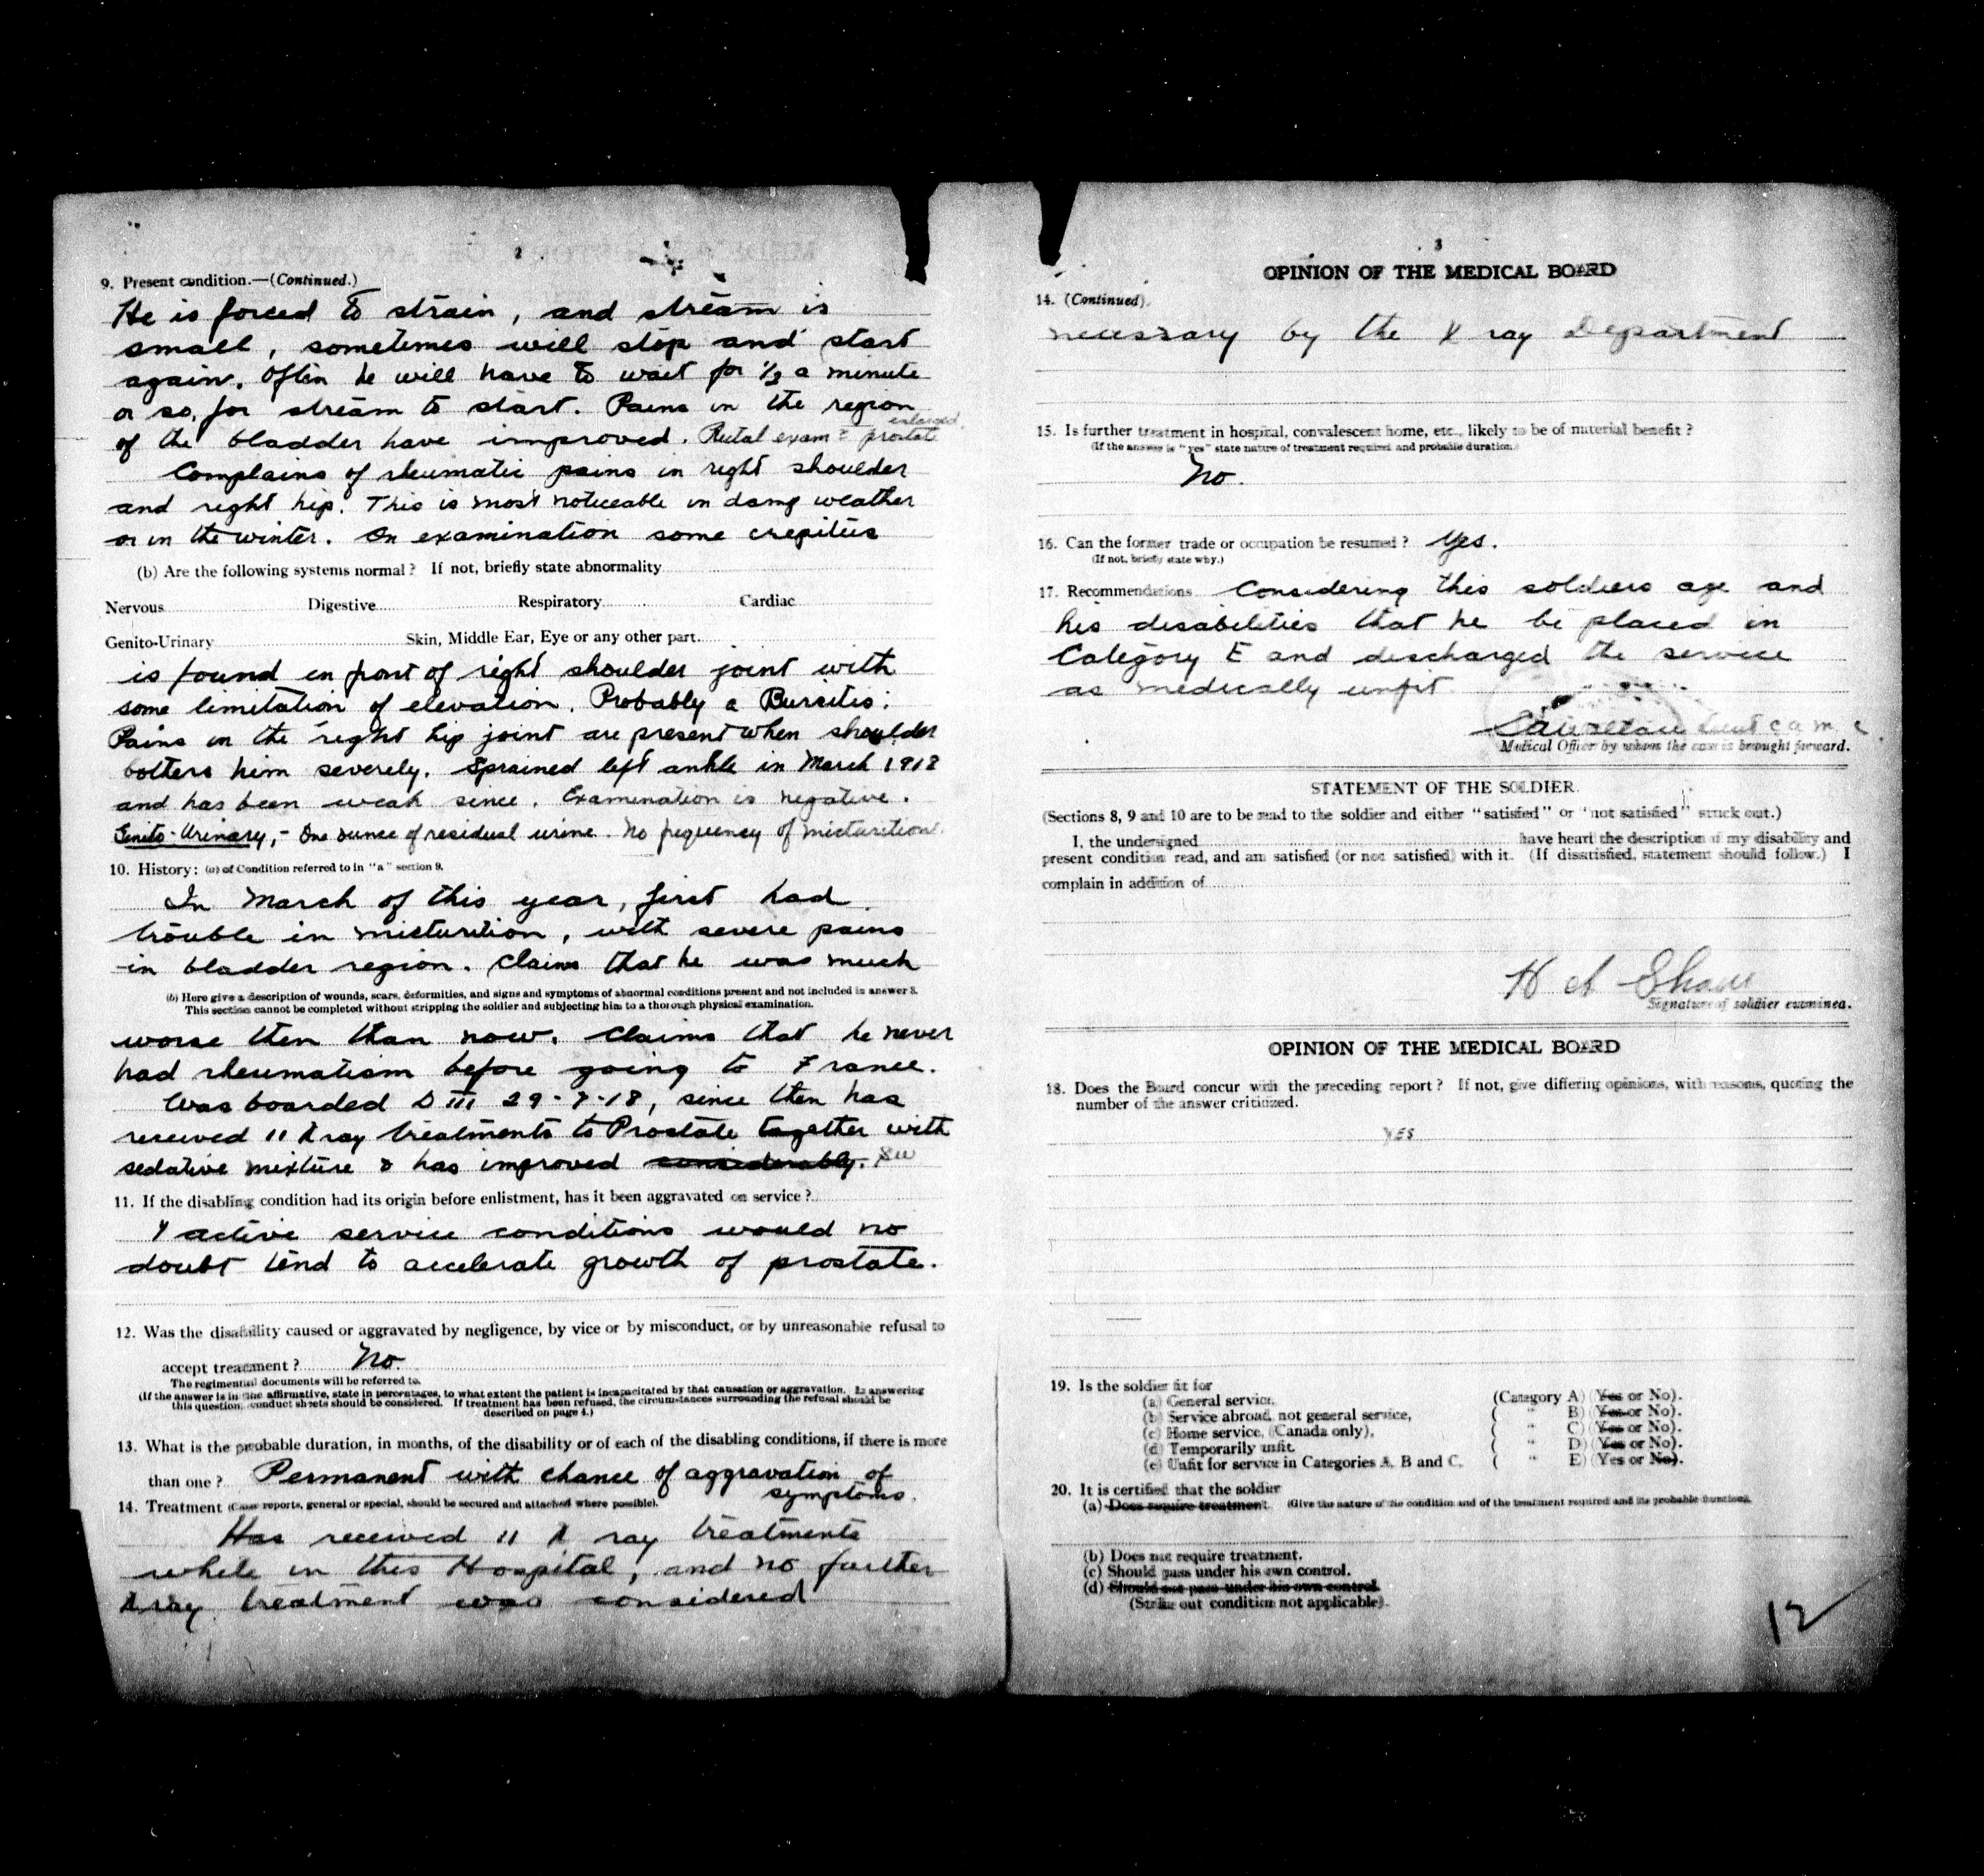 2
9. Present condition.—(Continued.)
He is forced to strain, and stream is
small, sometimes will stop and start
again. Often he will have to wait for 1/2 a minute
or so, for stream to start. Pains in the region
enlarged
of the bladder have improved. Rectal exam = prostate
Complains of rheumatic pains in right shoulder
and right hip. This is most noticeable in damp weather
or in the winter. On examination some crepitus
(b) Are the following systems normal? If not, briefly state abnormality
Nervous Digestive Respiratory Cardiac
Genito-Urinary Skin, Middle Ear, Eye or any other part.
is found in front of right shoulder joint with
some limitation of elevation. Probably a Bursitis.
Pains in the right hip joint are present when shoulder
bothers him severely. Sprained left ankle in March 1918
and has been weak since. Examination is negative.
Genito-Urinary,- One ounce of residual urine. No frequency of micturition.
10. History: (a) of Condition referred to in "a" section 9.
In March of this year, first had
trouble in micturition, with severe pains
in bladder region. Claims that he was much
(b) Here give a description of wounds, scars, deformities, and signs and symptoms of abnormal conditions present and not included in answer 8.
This section cannot be completed without stripping the soldier and subjecting him to a thorough physical examination.
worse then than now. Claims that he never
had rheumatism before going to France.
Was boarded D III 29-7-18, since then has
received 11 X ray treatments to Prostate together with
sedative mixture & has improved considerably.
11. If the disabling condition had its origin before enlistment, has it been aggravated on service?
Y active service conditions would no
doubt tend to accelerate growth of prostate.
12. Was the disability caused or aggravated by negligence, by vice or by misconduct, or by unreasonable refusal to
accept treatment? No.
The regimental documents will be referred to.
(If the answer is in the affirmative, state in percentages, to what extent the patient is incapacitated by that causation or aggravation. In answering
this question, conduct sheets should be considered. If treatment has been refused, the circumstances surrounding the refusal should be
described on page 4.)
13. What is the probable duration, in months, of the disability or of each of the disabling conditions, if there is more
than one? Permanent with chance of aggravation of
symptoms.
14. Treatment (Case reports, general or special, should be secured and attached where possible).
Has received 11 X ray treatments
while in this Hospital, and no further
X ray treatment was considered
3
OPINION OF THE MEDICAL BOARD
14. (Continued).
necessary by the X ray Department
15. Is further treatment in hospital, convalescent home, etc., likely to be of material benefit?
(If the answer is "yes" state nature of treatment required and probable duration.)
No.
16. Can the former trade or occupation be resumed? Yes.
(If not, briefly state why.)
17. Recommendations Considering this soldiers age and
his disabilities that he be placed in
Category E and discharged the service
as medically unfit
Lieut C A M C
Medical Officer by whom the case is brought forward.
STATEMENT OF THE SOLDIER.
(Sections 8, 9 and 10 are to be read to the soldier and either "satisfied" or "not satisfied" struck out.)
I, the undersigned have heard the description of my disability and
present condition read, and am satisfied (or not satisfied) with it. (If dissatisfied, statement should follow.) I
complain in addition of
H A Shaw
Signature of soldier examined.
OPINION OF THE MEDICAL BOARD
18. Does the Board concur with the preceding report? If not, give differing opinions, with reasons, quoting the
number of the answer criticized.
YES
19. Is the soldier fit for
(a) General service, (Category A) (Yes or No).
(b) Service abroad, not general service, ( " B) (Yes or No).
(c) Home service, (Canada only), ( " C) (Yes or No).
(d) Temporarily unfit. ( " D) (Yes or No).
(e) Unfit for service in Categories A, B and C, ( " E) (Yes or No).
20. It is certified that the soldier
(a) Does require treatment. (Give the nature of the condition and of the treatment required and its probable duration).
(b) Does not require treatment.
(c) Should pass under his own control.
(d) Should not pass under his own control.
(Strike out condition not applicable).
12